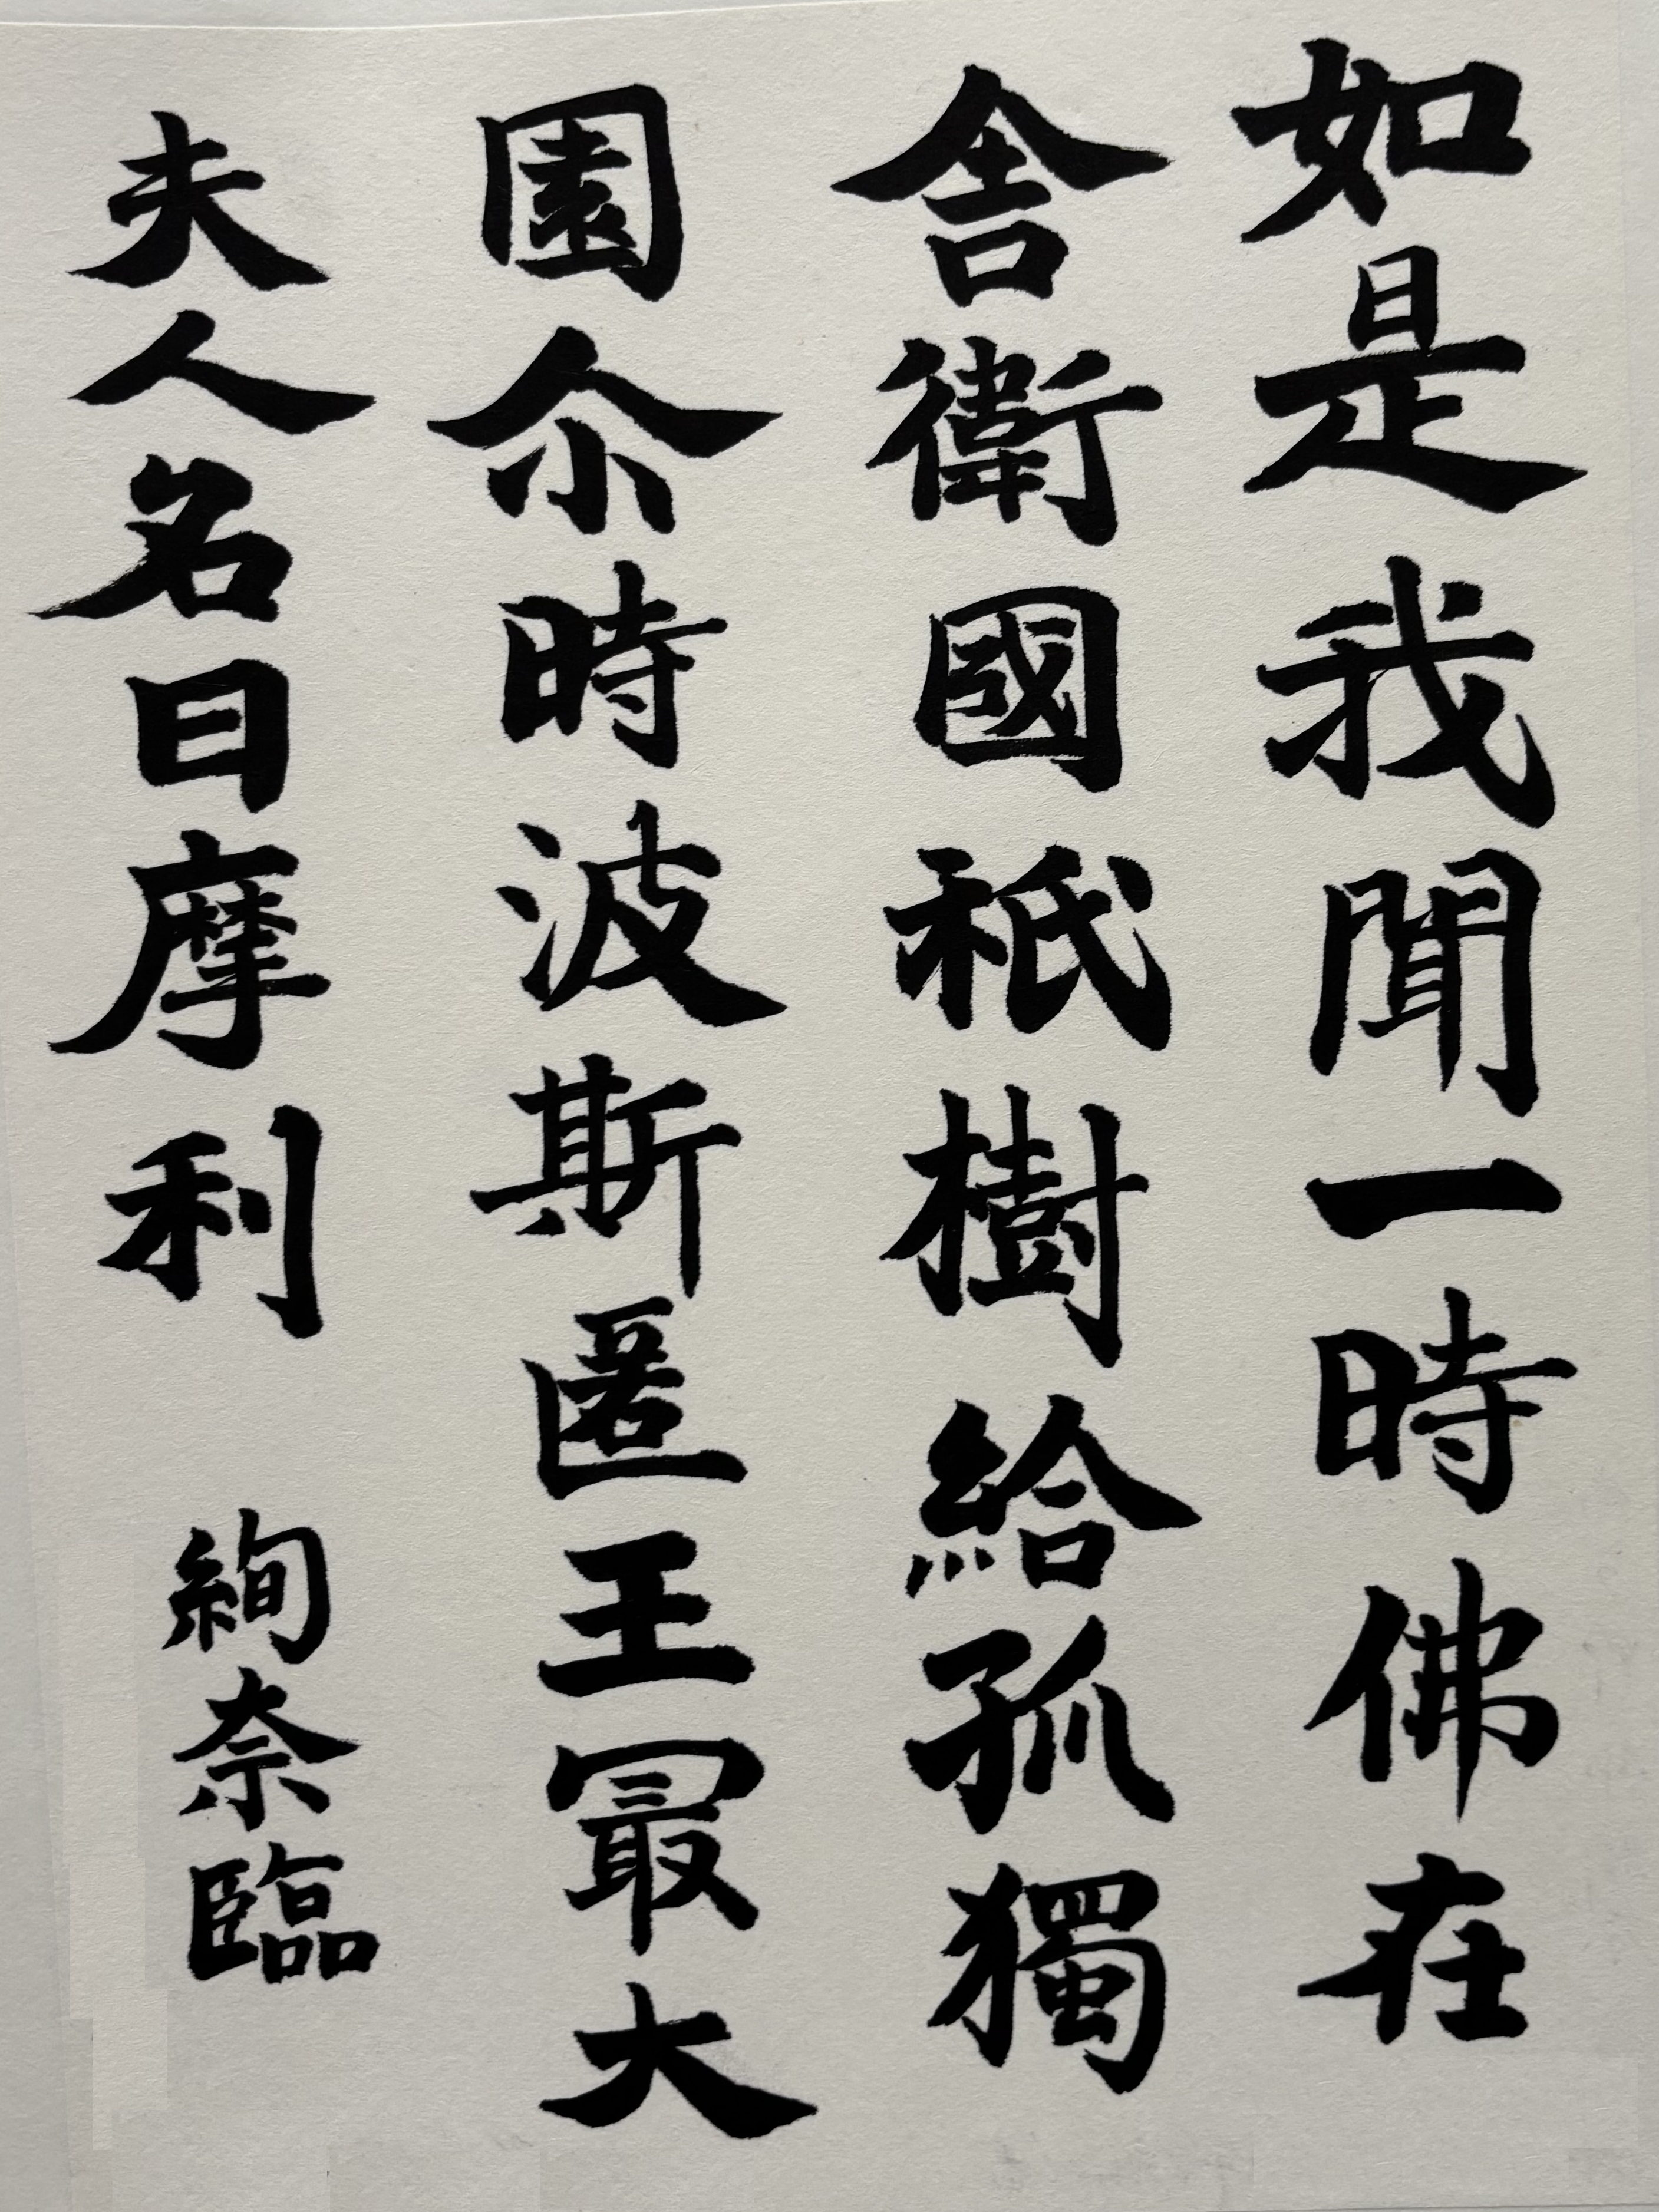 如是我聞一時佛在
舍衛國祇樹給孤獨
園尒時波斯匿王冣大
夫人名曰摩利
絢奈臨